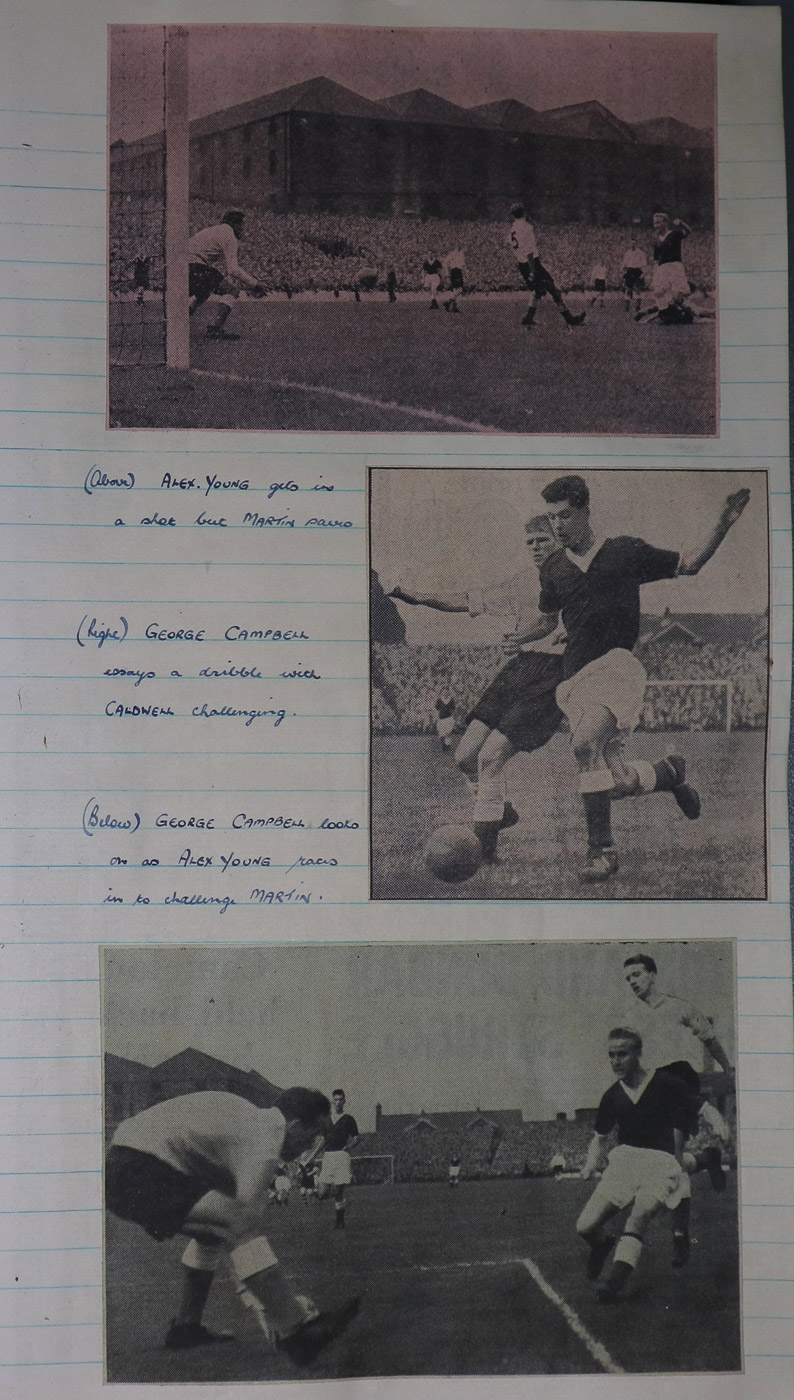 5
(Above) ALEX. YOUNG gets in
a shot but MARTIN saves
(Right) GEORGE CAMPBELL
essays a dribble with
CALDWELL challenging.
(Below) GEORGE CAMPBELL looks
on as ALEX YOUNG races
in to challenge MARTIN.